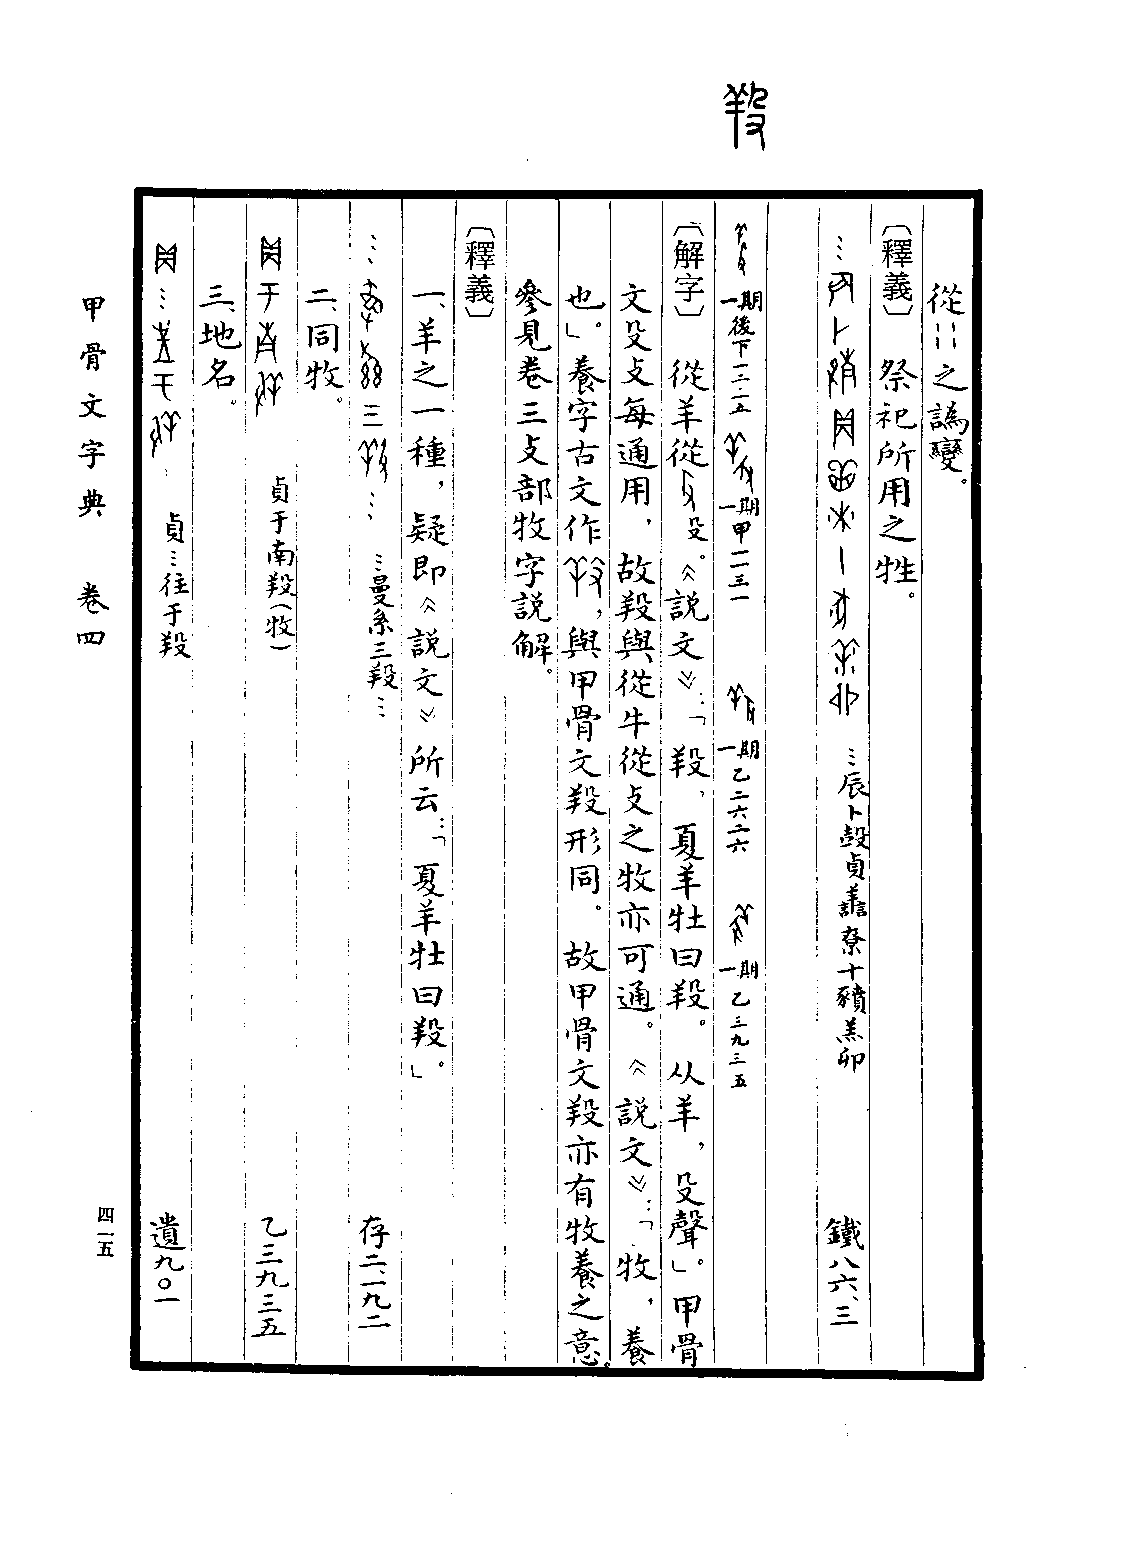 羖
從∶∶之譌變。
〔釋義〕 祭祀所用之牲。
…辰卜㱿貞 尞十豶羔卯 鐵八六、三
一期後下一二·五 一期甲二二三一 一期乙二六二六 一期乙三九三五
〔解字〕 從羊從殳。《說文》：「羖，夏羊牡曰羖。从羊，殳聲」。甲骨
文殳攴每通用，故羖與從牛從攴之牧亦可通。《說文》：「牧，養
也」。養字古文作，與甲骨文羖形同。故甲骨文羖亦有牧養之意。
參見卷三攴部牧字說解。
〔釋義〕
一、羊之一種，疑即《說文》所云：「夏羊牡曰羖。」
…曼系三羖… 存二、一九二
二、同牧。
貞于南羖（牧） 乙三九三五
三、地名。
貞…往于羖 遺九〇一
甲骨文字典 卷四
四一五